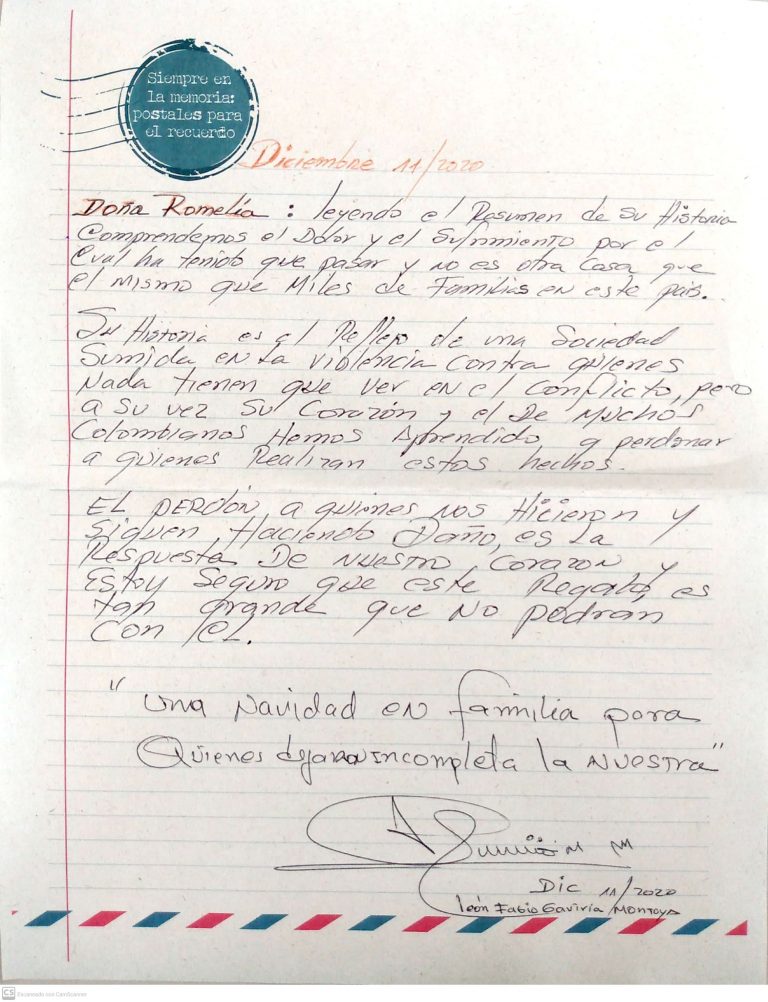 Siempre en
la memoria:
postales para
el recuerdo
Diciembre 11/2020
Doña Romelia : leyendo el Resumen de su Historia
Comprendemos el Dolor y el Sufrimiento por el
Cual ha tenido que pasar y no es otra cosa que
el mismo que Miles de Familias en este país.
Su Historia es el Reflejo de una Sociedad
Sumida en la violencia contra quienes
Nada tienen que ver en el conflicto, pero
a su vez su Corazón y el De Muchos
Colombianos Hemos Aprendido a perdonar
a quienes Realizan estos hechos.
EL PERDÓN a quienes nos Hicieron y
Siguen Haciendo Daño, es la
Respuesta De nuestro Corazon y
Estoy Seguro que este Regalo es
tan grande que No podrán
Con él.
"una Navidad en familia para
Quienes dejaron incompleta la nuestra"
Dic 11/2020
león Fabio Gaviria Montoya
CS Escaneado con CamScanner